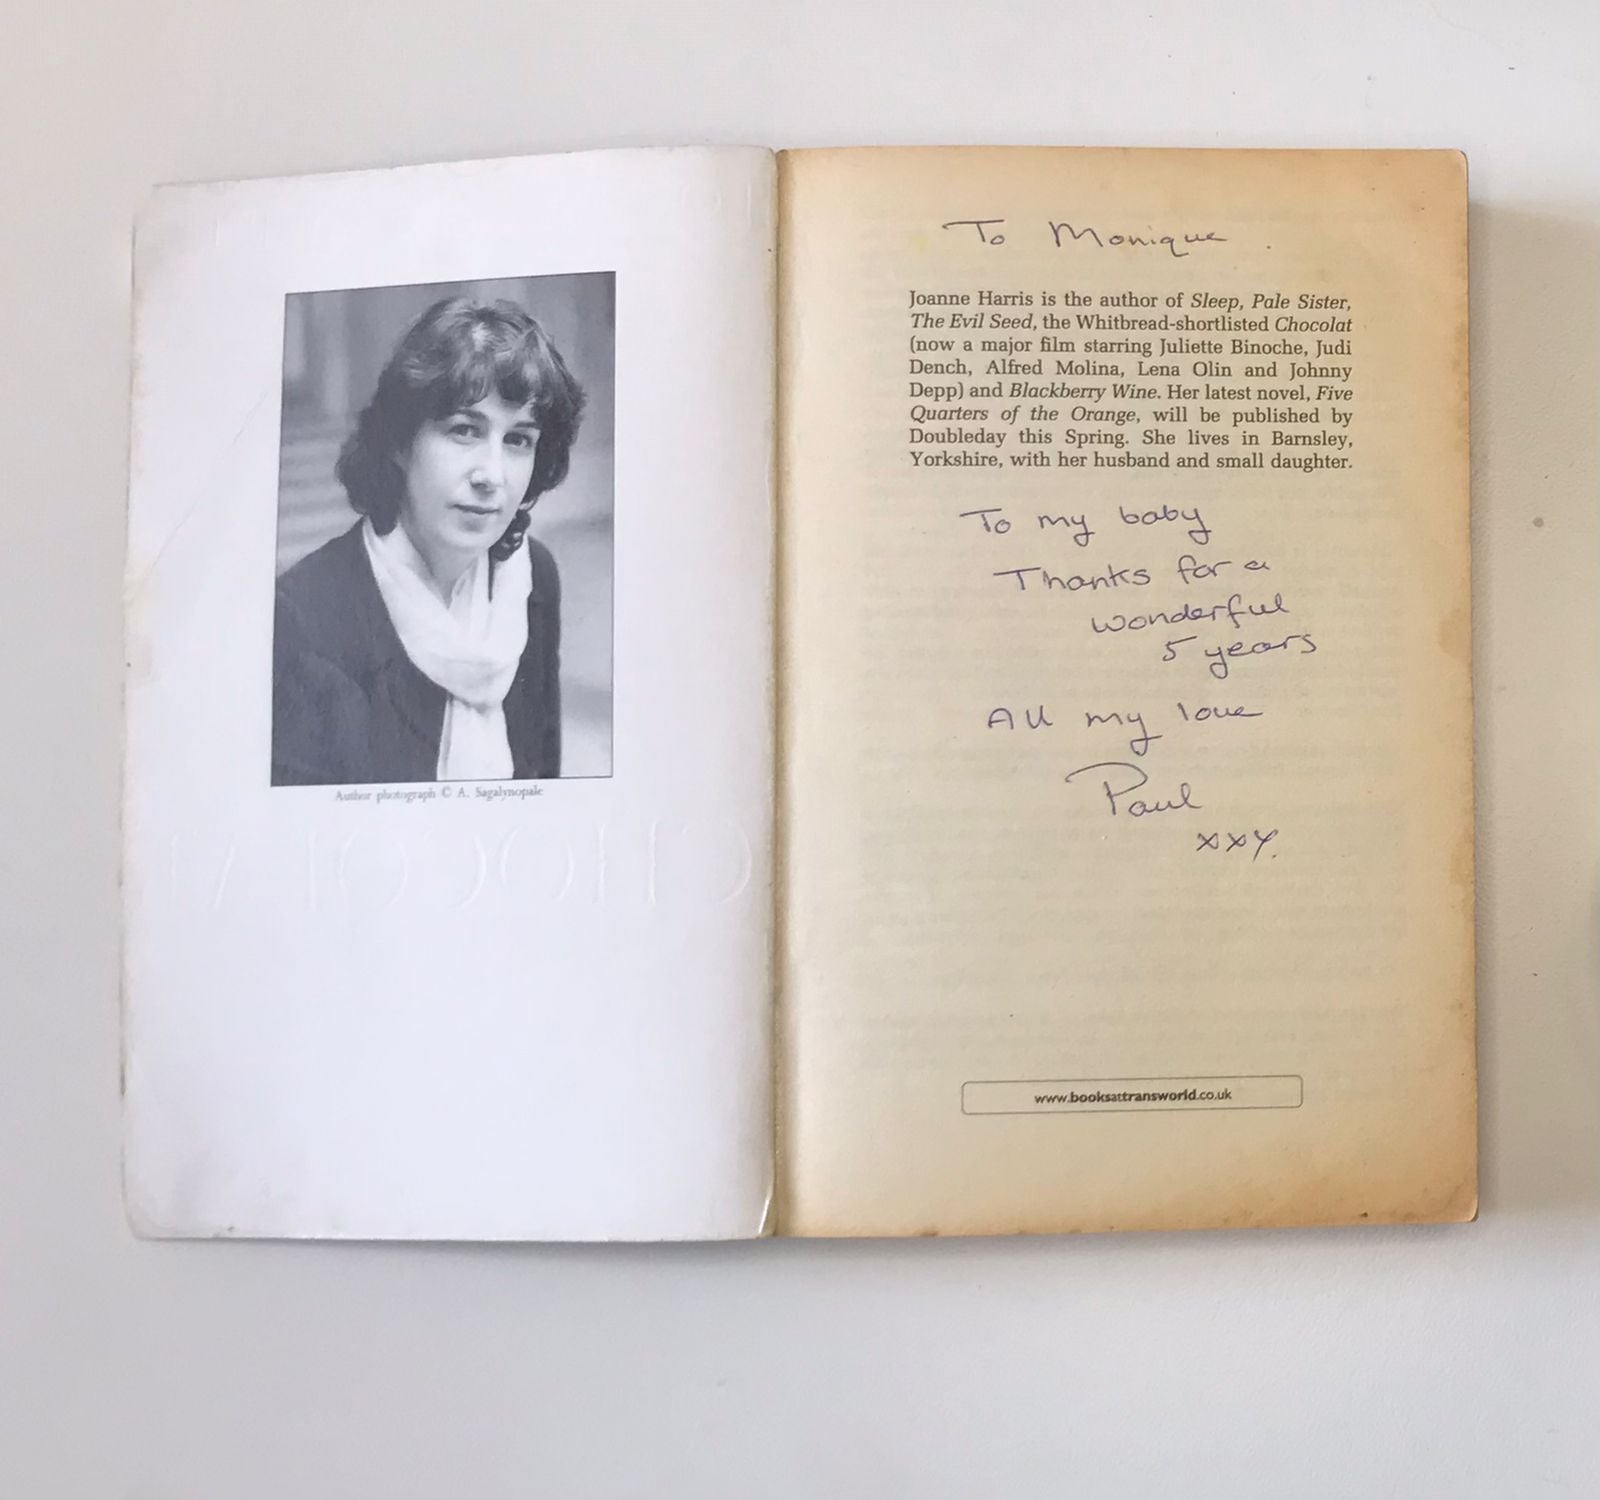 Author photograph © A. Sagalynopale
CHOCOLAT
To Monique.
Joanne Harris is the author of Sleep, Pale Sister,
The Evil Seed, the Whitbread-shortlisted Chocolat
(now a major film starring Juliette Binoche, Judi
Dench, Alfred Molina, Lena Olin and Johnny
Depp) and Blackberry Wine. Her latest novel, Five
Quarters of the Orange, will be published by
Doubleday this Spring. She lives in Barnsley,
Yorkshire, with her husband and small daughter.
To my baby
Thanks for a
wonderful
5 years
All my love
Paul
xxx.
www.booksattransworld.co.uk